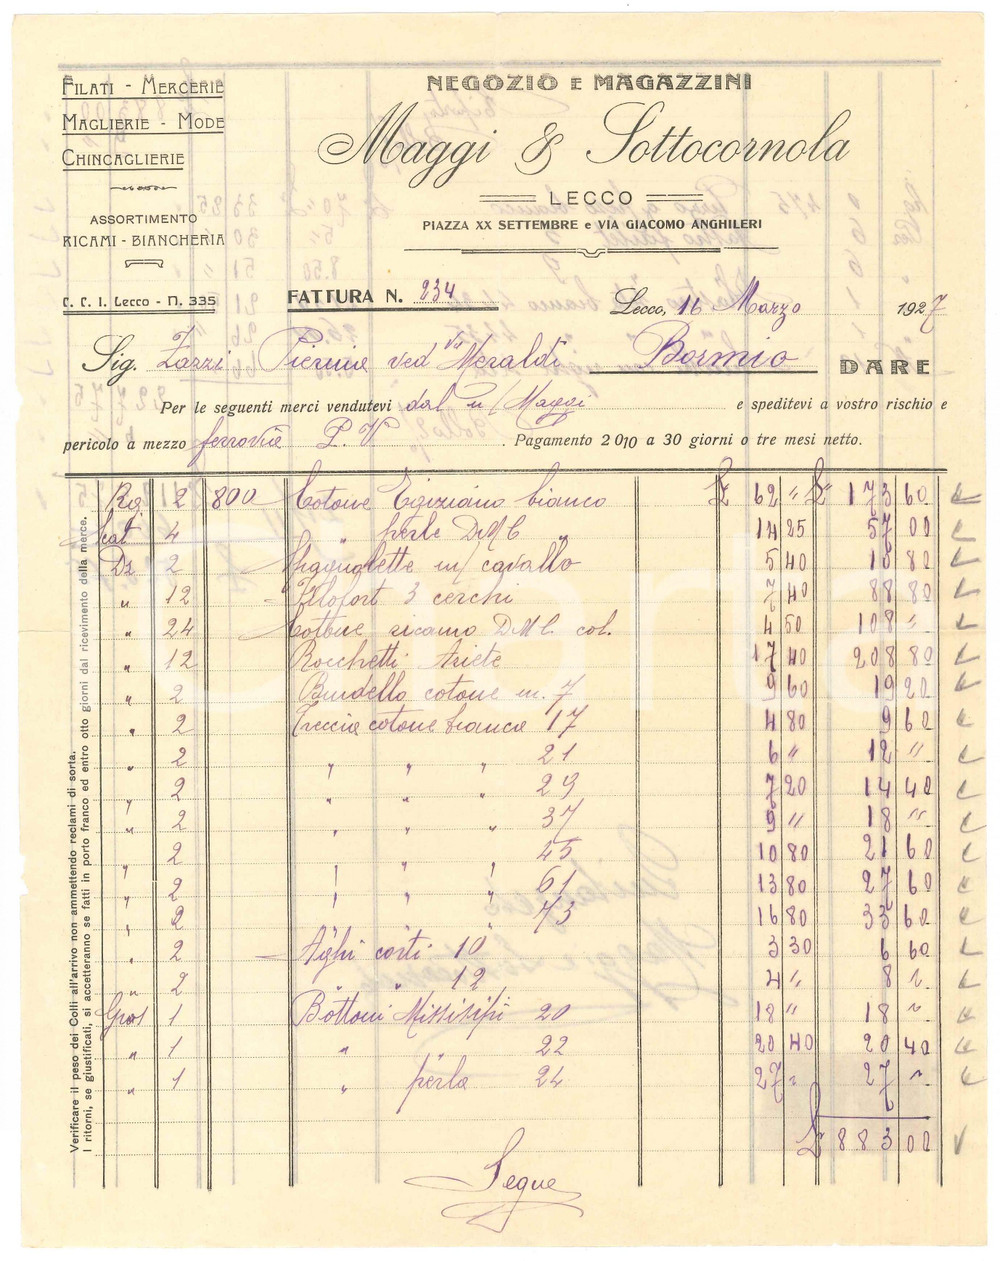 FILATI - MERCERIE
MAGLIERIE - MODE
CHINCAGLIERIE
ASSORTIMENTO
RICAMI - BIANCHERIA
C. C. I. Lecco - N. 335
NEGOZIO E MAGAZZINI
Maggi & Sottocornola
LECCO
PIAZZA XX SETTEMBRE e VIA GIACOMO ANGHILERI
FATTURA N. 234
Lecco, 16 Marzo 1927
Sig. Zazzi Pierina ved Bormio DARE
Per le seguenti merci vendutevi dal n/ Maggi e speditevi a vostro rischio e
pericolo a mezzo ferrovia P. V. Pagamento 2 0|0 a 30 giorni o tre mesi netto.
2 800 Cotone Egiziano bianco £ 62 " £ 173 60
4 " perle DMC " 14 25 57 00
Dz 2 m/ cavallo 5 40 10 80
" 12 Filofort 3 cerchi 7 40 88 80
" 24 Cotone ricamo DMC col. 4 50 108 "
" 12 Rocchetti Ariete 17 40 208 80
" 2 cotone m. 7 9 60 19 20
" 2 Treccia cotone bianca 17 4 80 9 60
" 2 " " " 21 6 " 12 "
" 2 " " " 29 7 20 14 40
" 2 " " " 37 9 " 18 "
" 2 " " " 45 10 80 21 60
" 2 " " " 61 13 80 27 60
" 2 " " " 73 16 80 33 60
" 2 Aghi corti 10 3 30 6 60
" 2 " " 12 4 " 8 "
Gros 1 Bottoni Missisipi 20 18 " 18 "
" 1 " 22 20 40 20 40
" 1 " perla 24 27 " 27 "
£ 883 00
Segue
Verificare il peso dei Colli all'arrivo non ammettendo reclami di sorta.
I ritorni, se giustificati, si accetteranno se fatti in porto franco ed entro otto giorni dal ricevimento della merce.